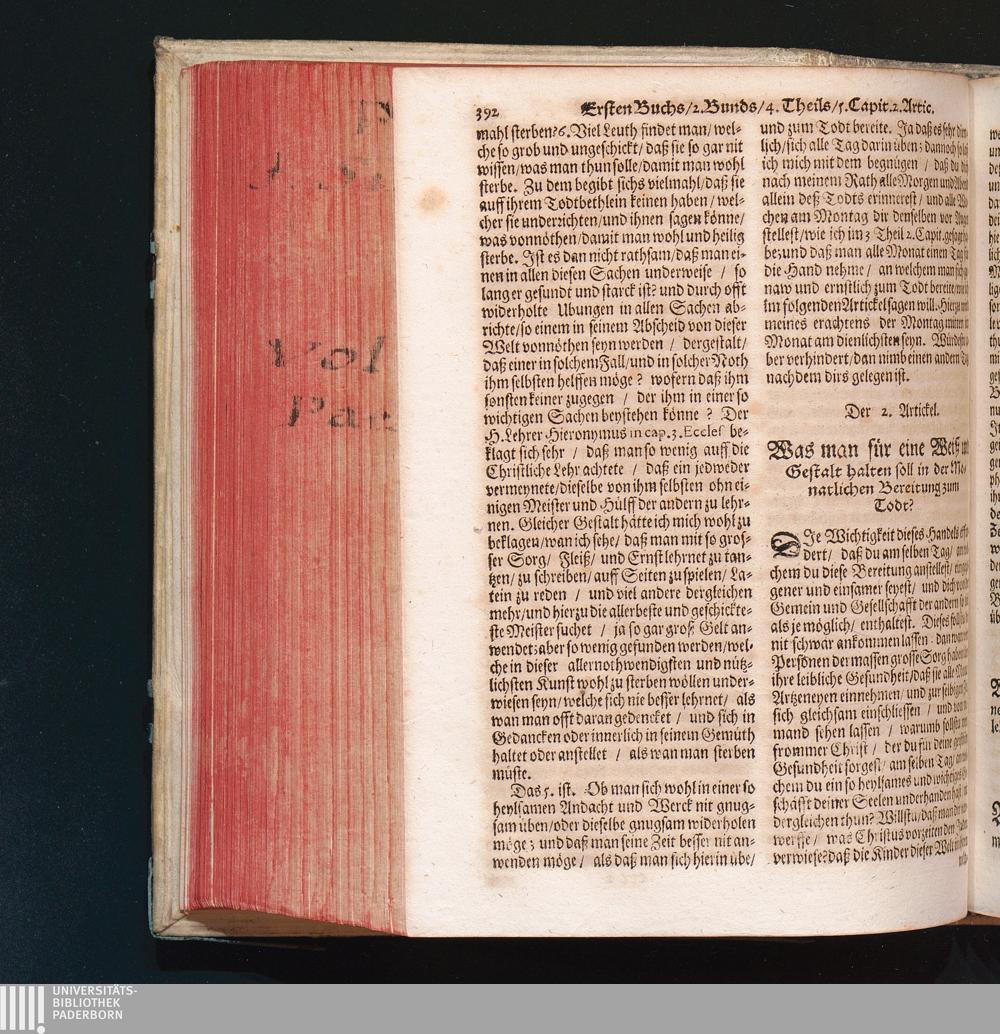 392 Ersten Buchs/2. Bunds/4. Theils/5. Capit. 2. Artic.
mahl sterben? 6. Viel Leuth findet man/ wel-
che so grob und ungeschickt/ daß sie so gar nit
wissen/ was man thun solle/ damit man wohl
sterbe. Zu dem begibt sichs vielmahl/ daß sie
auff ihrem Todtbethlein keinen haben/ wel-
cher sie underzichten/ und ihnen sagen könne/
was vonnöthen/ damit man wohl und heilig
sterbe. Ist es dan nicht rathsam/ daß man ei-
nen in allen diesen Sachen underweise / so
lang er gesundt und starck ist? und durch offt
widerholte Ubungen in allen Sachen ab-
richte/ so einem in seinem Abscheid von dieser
Welt vonnöthen seyn werden / dergestalt/
daß einer in solchem Fall/ und in solcher Noth
ihm selbsten helffen möge ? wofern daß ihm
sonsten keiner zugegen / der ihm in einer so
wichtigen Sachen beystehen könne ? Der
H. Lehrer Hieronymus in cap. 3. Eccles be-
klagt sich sehr / daß man so wenig auff die
Christliche Lehr achtete / daß ein jedweder
vermeynete/ dieselbe von ihm selbsten ohn ei-
nigen Meister und Hülff der andern zu lehr-
nen. Gleicher Gestalt hätte ich mich wohl zu
beklagen/ wan ich sehe/ daß man mit so gros-
ser Sorg/ Fleiß/ und Ernst lehrnet zu tan-
tzen/ zu schreiben/ auff Seiten zu spielen/ La-
tein zu reden / und viel andere dergleichen
mehr/ und hierzu die allerbeste und geschickte-
ste Meister suchet / ja so gar groß Gelt an-
wendet; aber so wenig gefunden werden/ wel-
che in dieser allernothwendigsten und nütz-
lichsten Kunst wohl zu sterben wöllen under-
wiesen seyn/ welche sich nie besser lehrnet/ als
wan man offt daran gedencket / und sich in
Gedancken oder innerlich in seinem Gemüth
haltet oder anstellet / als wan man sterben
müste.
Das 5. ist. Ob man sich wohl in einer so
heylsamen Andacht und Werck nit gnug-
sam üben/ oder dieselbe gnugsam widerholen
möge; und daß man seine Zeit besser nit an-
wenden möge/ als daß man sich hierin übe/
und zum Todt bereite. Ja daß es sehr
lich/ sich alle Tag darin üben; dannoch
ich mich mit dem begnügen / daß du
nach meinem Rath alle Morgen und
allein deß Todts erinnerest / und alle
chen am Montag dir denselben vor
stellest/ wie ich im 3 Theil 2. Capit.
be; und daß man alle Monat einen Tag
die Hand nehme / an welchem man sich
naw und ernstlich zum Todt bereite/
im folgenden Artickel sagen will. Hierzu
meines erachtens der Montag mitten
Monat am dienlichsten seyn.
ber verhindert/ dan nimb einen andern
nachdem dirs gelegen ist.
Der 2. Artickel.
Was man für eine Weiß
Gestalt halten soll in der Mo-
natlichen Bereitung zum
Todt?
DIe Wichtigkeit dieses Handels
dert/ daß du am selben Tag/
chem du diese Bereitung anstellest/
gener und einsamer seyest/ und dich
Gemein und Gesellschafft der andern
als je möglich/ enthaltest. Dieses
nit schwär ankommen lassen: dan
Persönen der massen grosse Sorg
ihre leibliche Gesundheit/ daß sie alle
Artzeneyen einnehmen/ und zur selbigen
sich gleichsam einschliessen / und
mand sehen lassen / warumb
frommer Christ / der du für deine
Gesundheit sorgest/ am selben Tag/
chem du ein so heylsames und wichtiges
schäfft deiner Seelen underhanden hast
dergleichen thun? Willstu/ daß man
werffe/ was Christus vorzeiten den
verwiese? daß die Kinder dieser Welt
UNIVERSITÄTS-
BIBLIOTHEK
PADERBORN